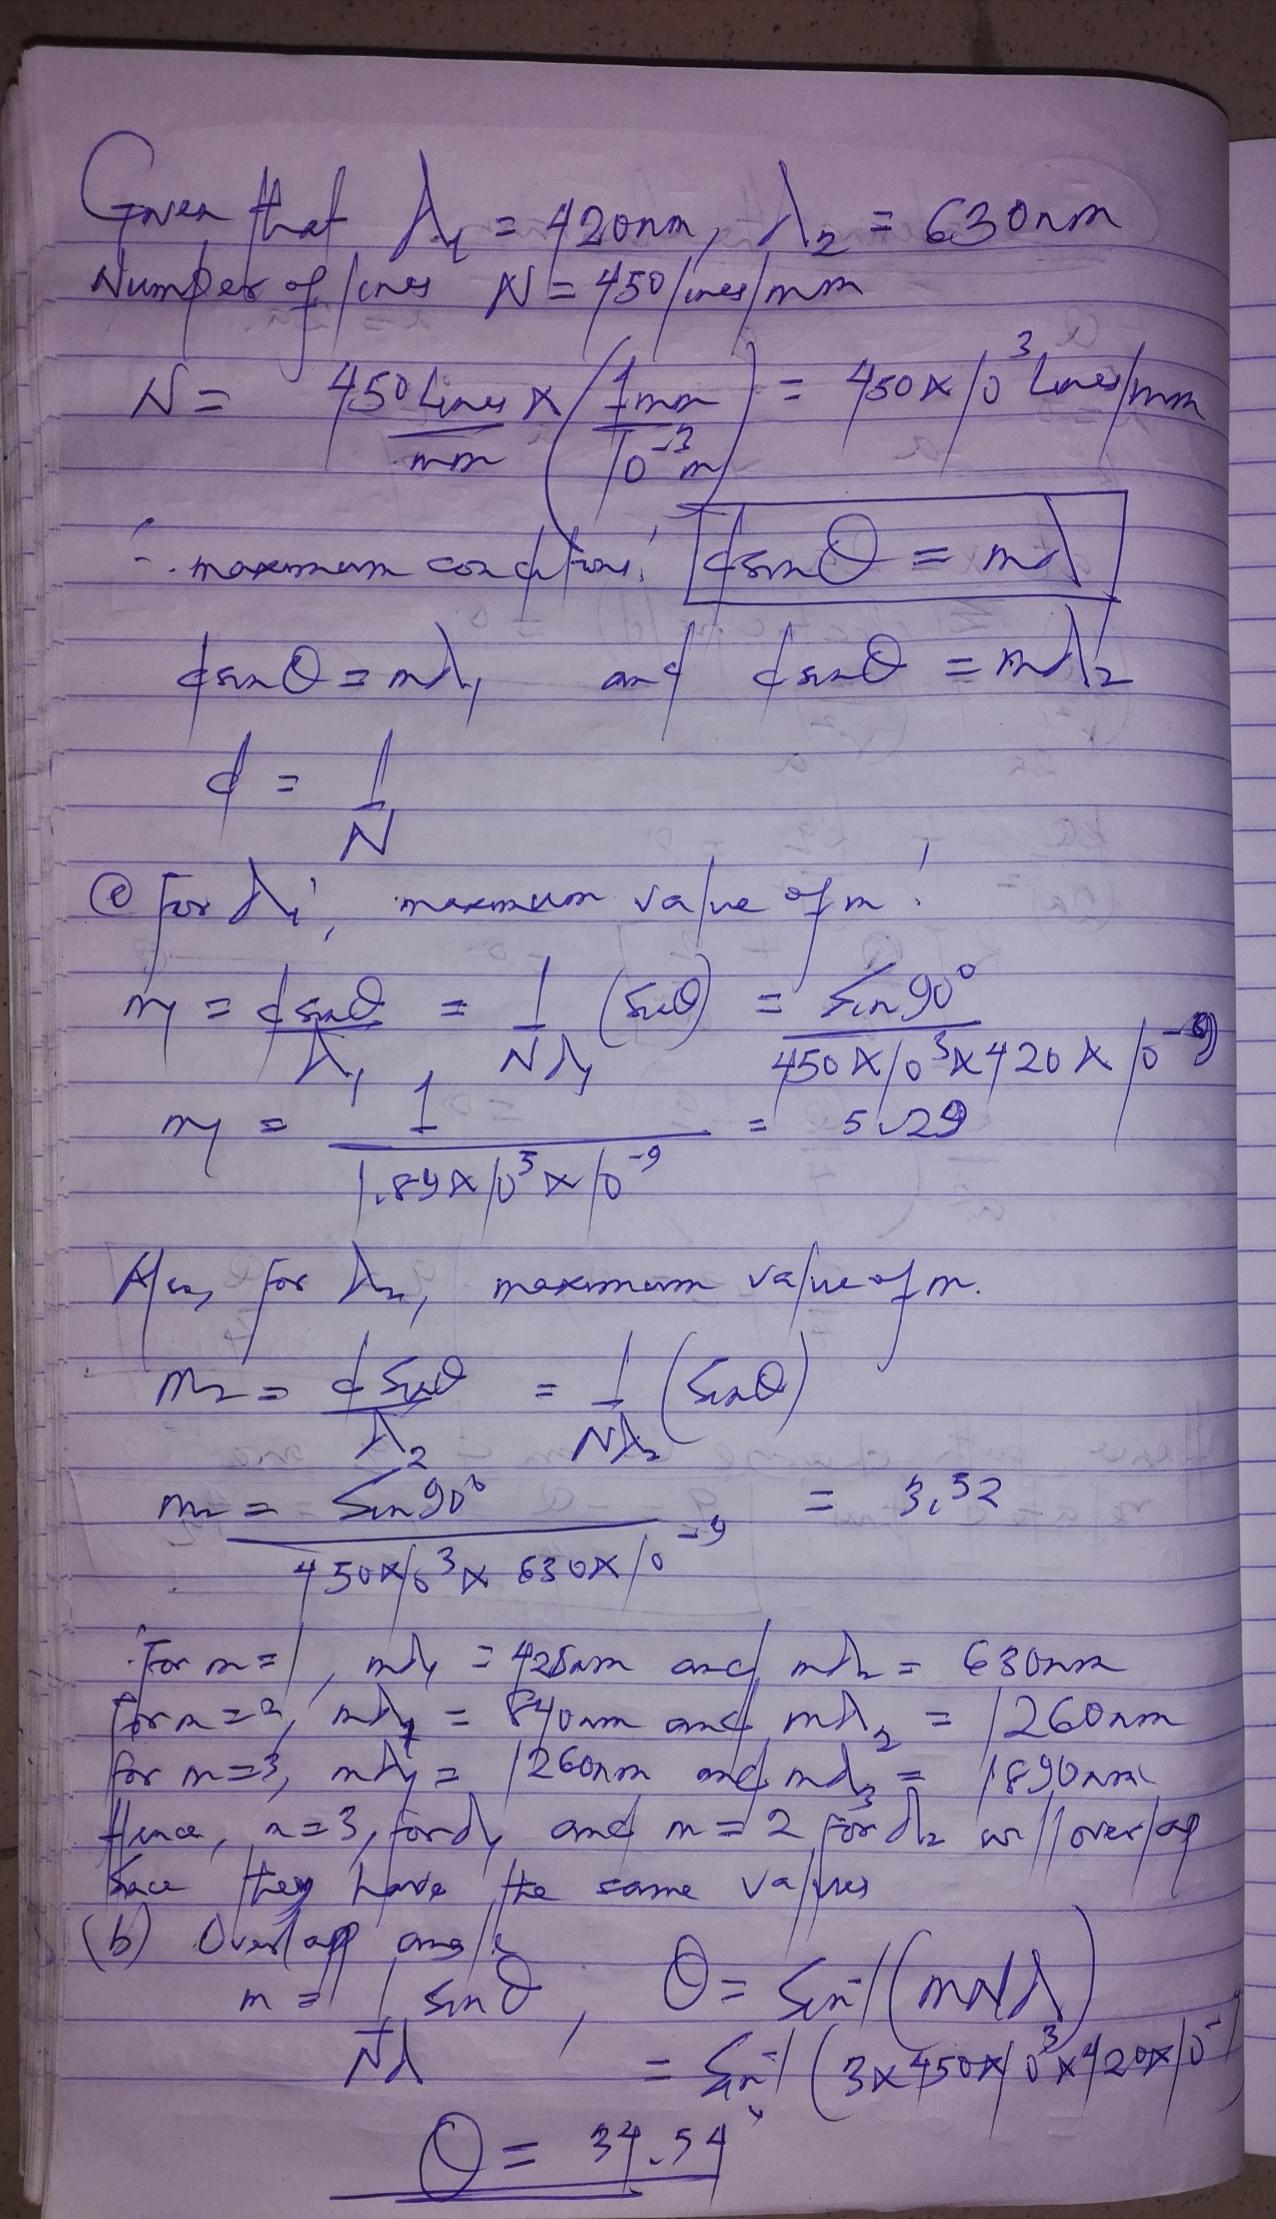 Given that λ₁ = 420nm, λ₂ = 630nm
Number of lines N = 450 lines/mm
N = 450 Lines/mm × (1mm/10⁻³m) = 450×10³ Lines/mm
∴ maximum conditions: dsinθ = mλ
dsinθ = mλ₁ and dsinθ = mλ₂
d = 1/N
@ For λ₁, maximum value of m:
m₁ = dsinθ/λ₁ = 1/Nλ₁ (sinθ) = Sin90°/450×10³×420×10⁻⁹
m₁ = 1/1.89×10⁵×10⁻⁹ = 5.29
Also, for λ₂, maximum value of m.
m₂ = dSinθ/λ₂ = 1/Nλ₂ (Sinθ)
m₂ = Sin90°/450×10³×630×10⁻⁹ = 3.52
For m=1, mλ₁ = 425nm and mλ₂ = 630nm
For m=2, mλ₁ = 840nm and mλ₂ = 1260nm
for m=3, mλ₁ = 1260nm and mλ₂ = 1890nm
Hence, m=3, for λ₁ and m=2 for λ₂ will overlap
Since they have the same values
(b) Overlap angle
m = 1/Nλ sinθ, θ = Sin⁻¹(mNλ)
= Sin⁻¹(3×450×10³×420×10⁻
θ = 34.54°